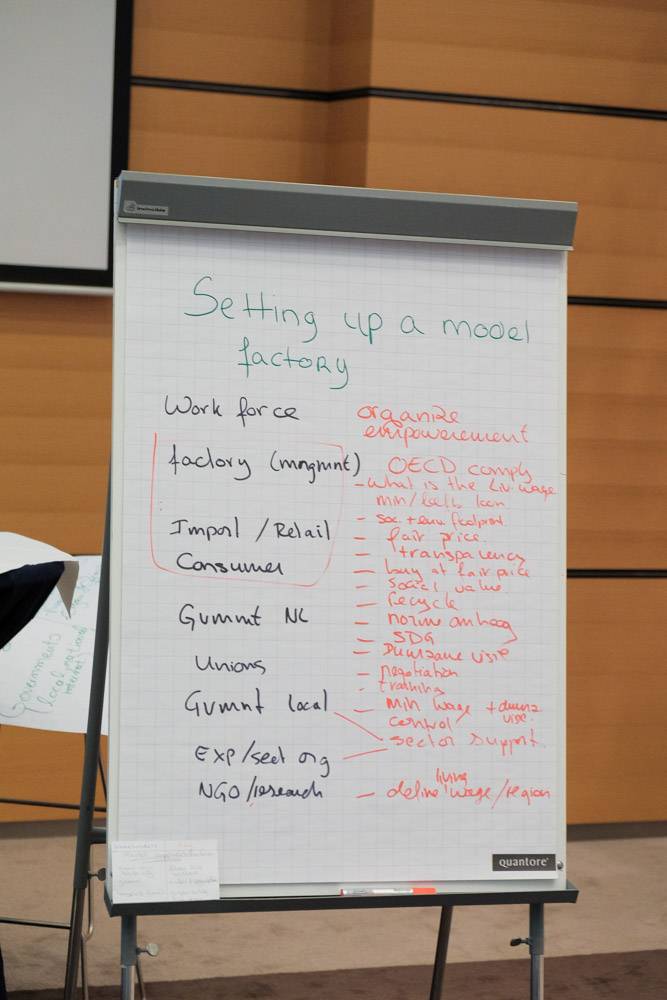 Setting up a model
factory
Work force
organize
empowerement
factory (mngmnt)
OECD comply
- what is the Liv. wage
min/
- soc. + env. footprint
Import / Retail
- fair price
- transparency
Consumer
- buy at fair price
- social value
- recycle
Gvmnt NL
- norm omhoog
- SDG
- Duurzame visie
Unions
- negotiation
- training
Gvmnt local
- min wage + duurz
control visie
sector support
EXP/sect org
NGO/research
- define living wage/region
quantore
Governments
local national